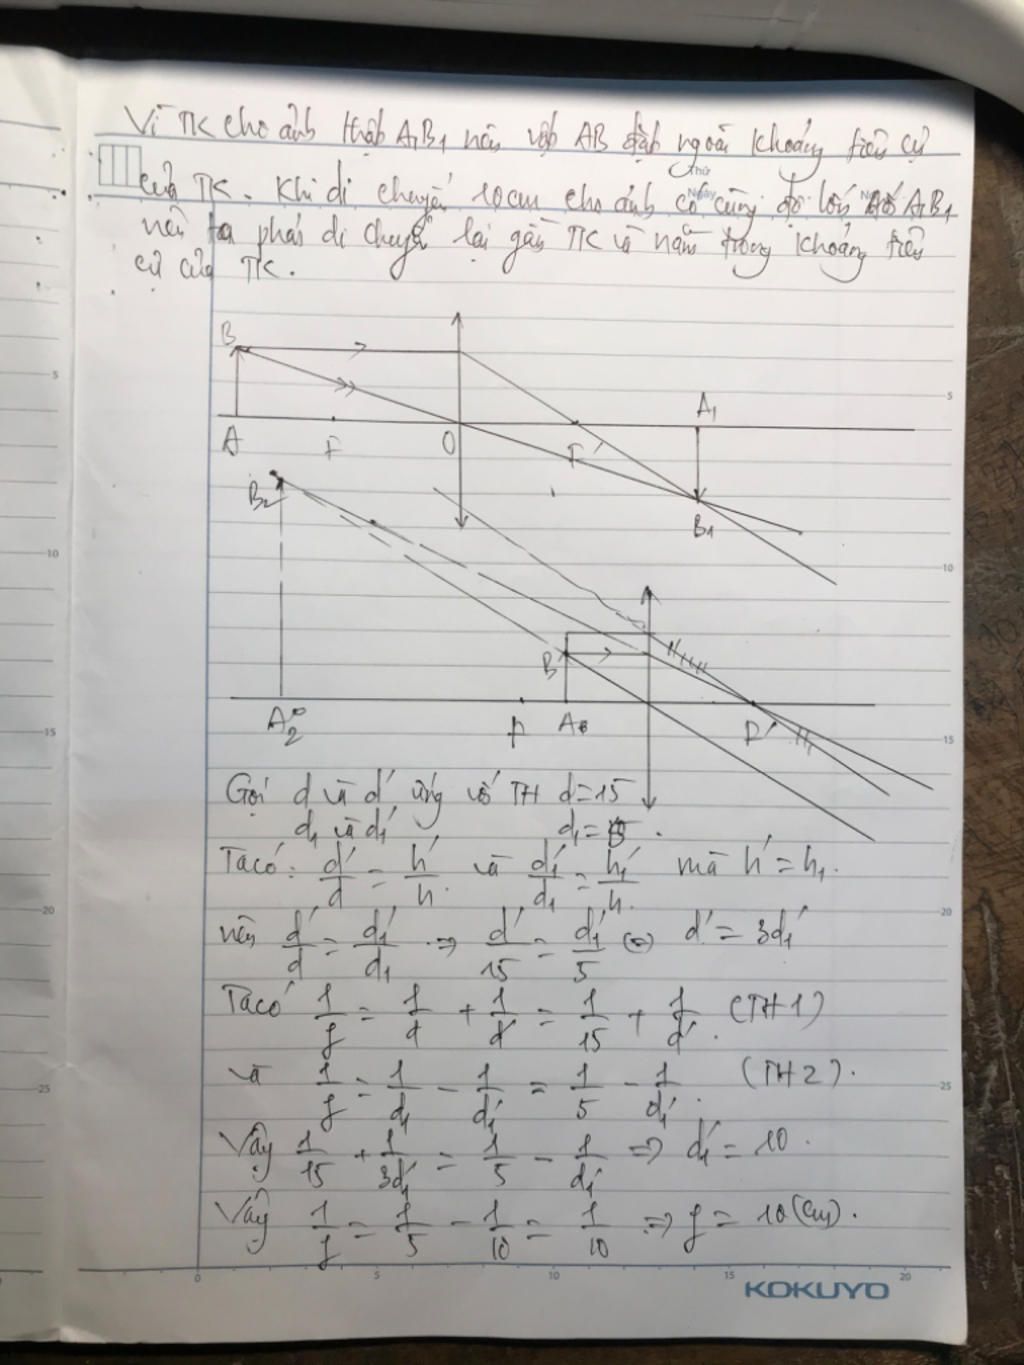 Vì TK cho ảnh thật A1B1 nên vật AB đặt ngoài khoảng tiêu cự
Thứ
Ngày
của TK. Khi di chuyển 10cm cho ảnh có cùng độ lớn A1B1
nên ta phải di chuyển lại gần TK và nằm trong khoảng tiêu
cự của TK.
B
A F O F' A1
B1
B2
B
A2 F A F'
Gọi d và d' ứng với TH d = 15
d1 và d1' d1 = 5.
Ta có: d'/d = h'/h và d1'/d1 = h1'/h mà h' = h1.
nên d'/d = d1'/d1 => d'/15 = d1'/5 <=> d' = 3d1'
Ta có 1/f = 1/d + 1/d' = 1/15 + 1/d'. (TH1)
và 1/f = 1/d1 - 1/d1' = 1/5 - 1/d1'. (TH2).
Vậy 1/15 + 1/3d1' = 1/5 - 1/d1' => d1' = 10.
Vậy 1/f = 1/5 - 1/10 = 1/10 => f = 10 (cm).
5
10
15
20
25
5
10
15
20
25
0 5 10 15 20
KOKUYO